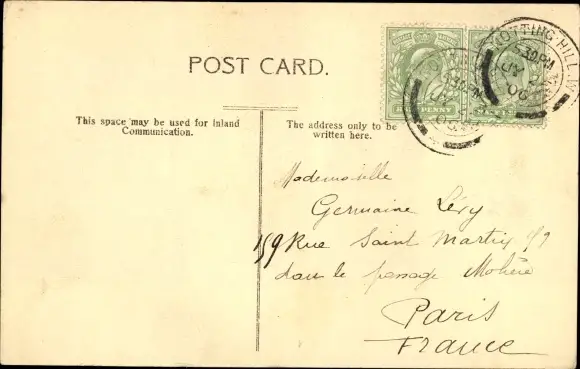 POST CARD.
This space may be used for Inland
Communication.
The address only to be
written here.
PENNY
NOTTING HILL. W
5.30 PM
JY
06
5.30 PM
Mademoiselle
Germaine Lévy
159 Rue Saint Martin
dans le passage Molière
Paris
France